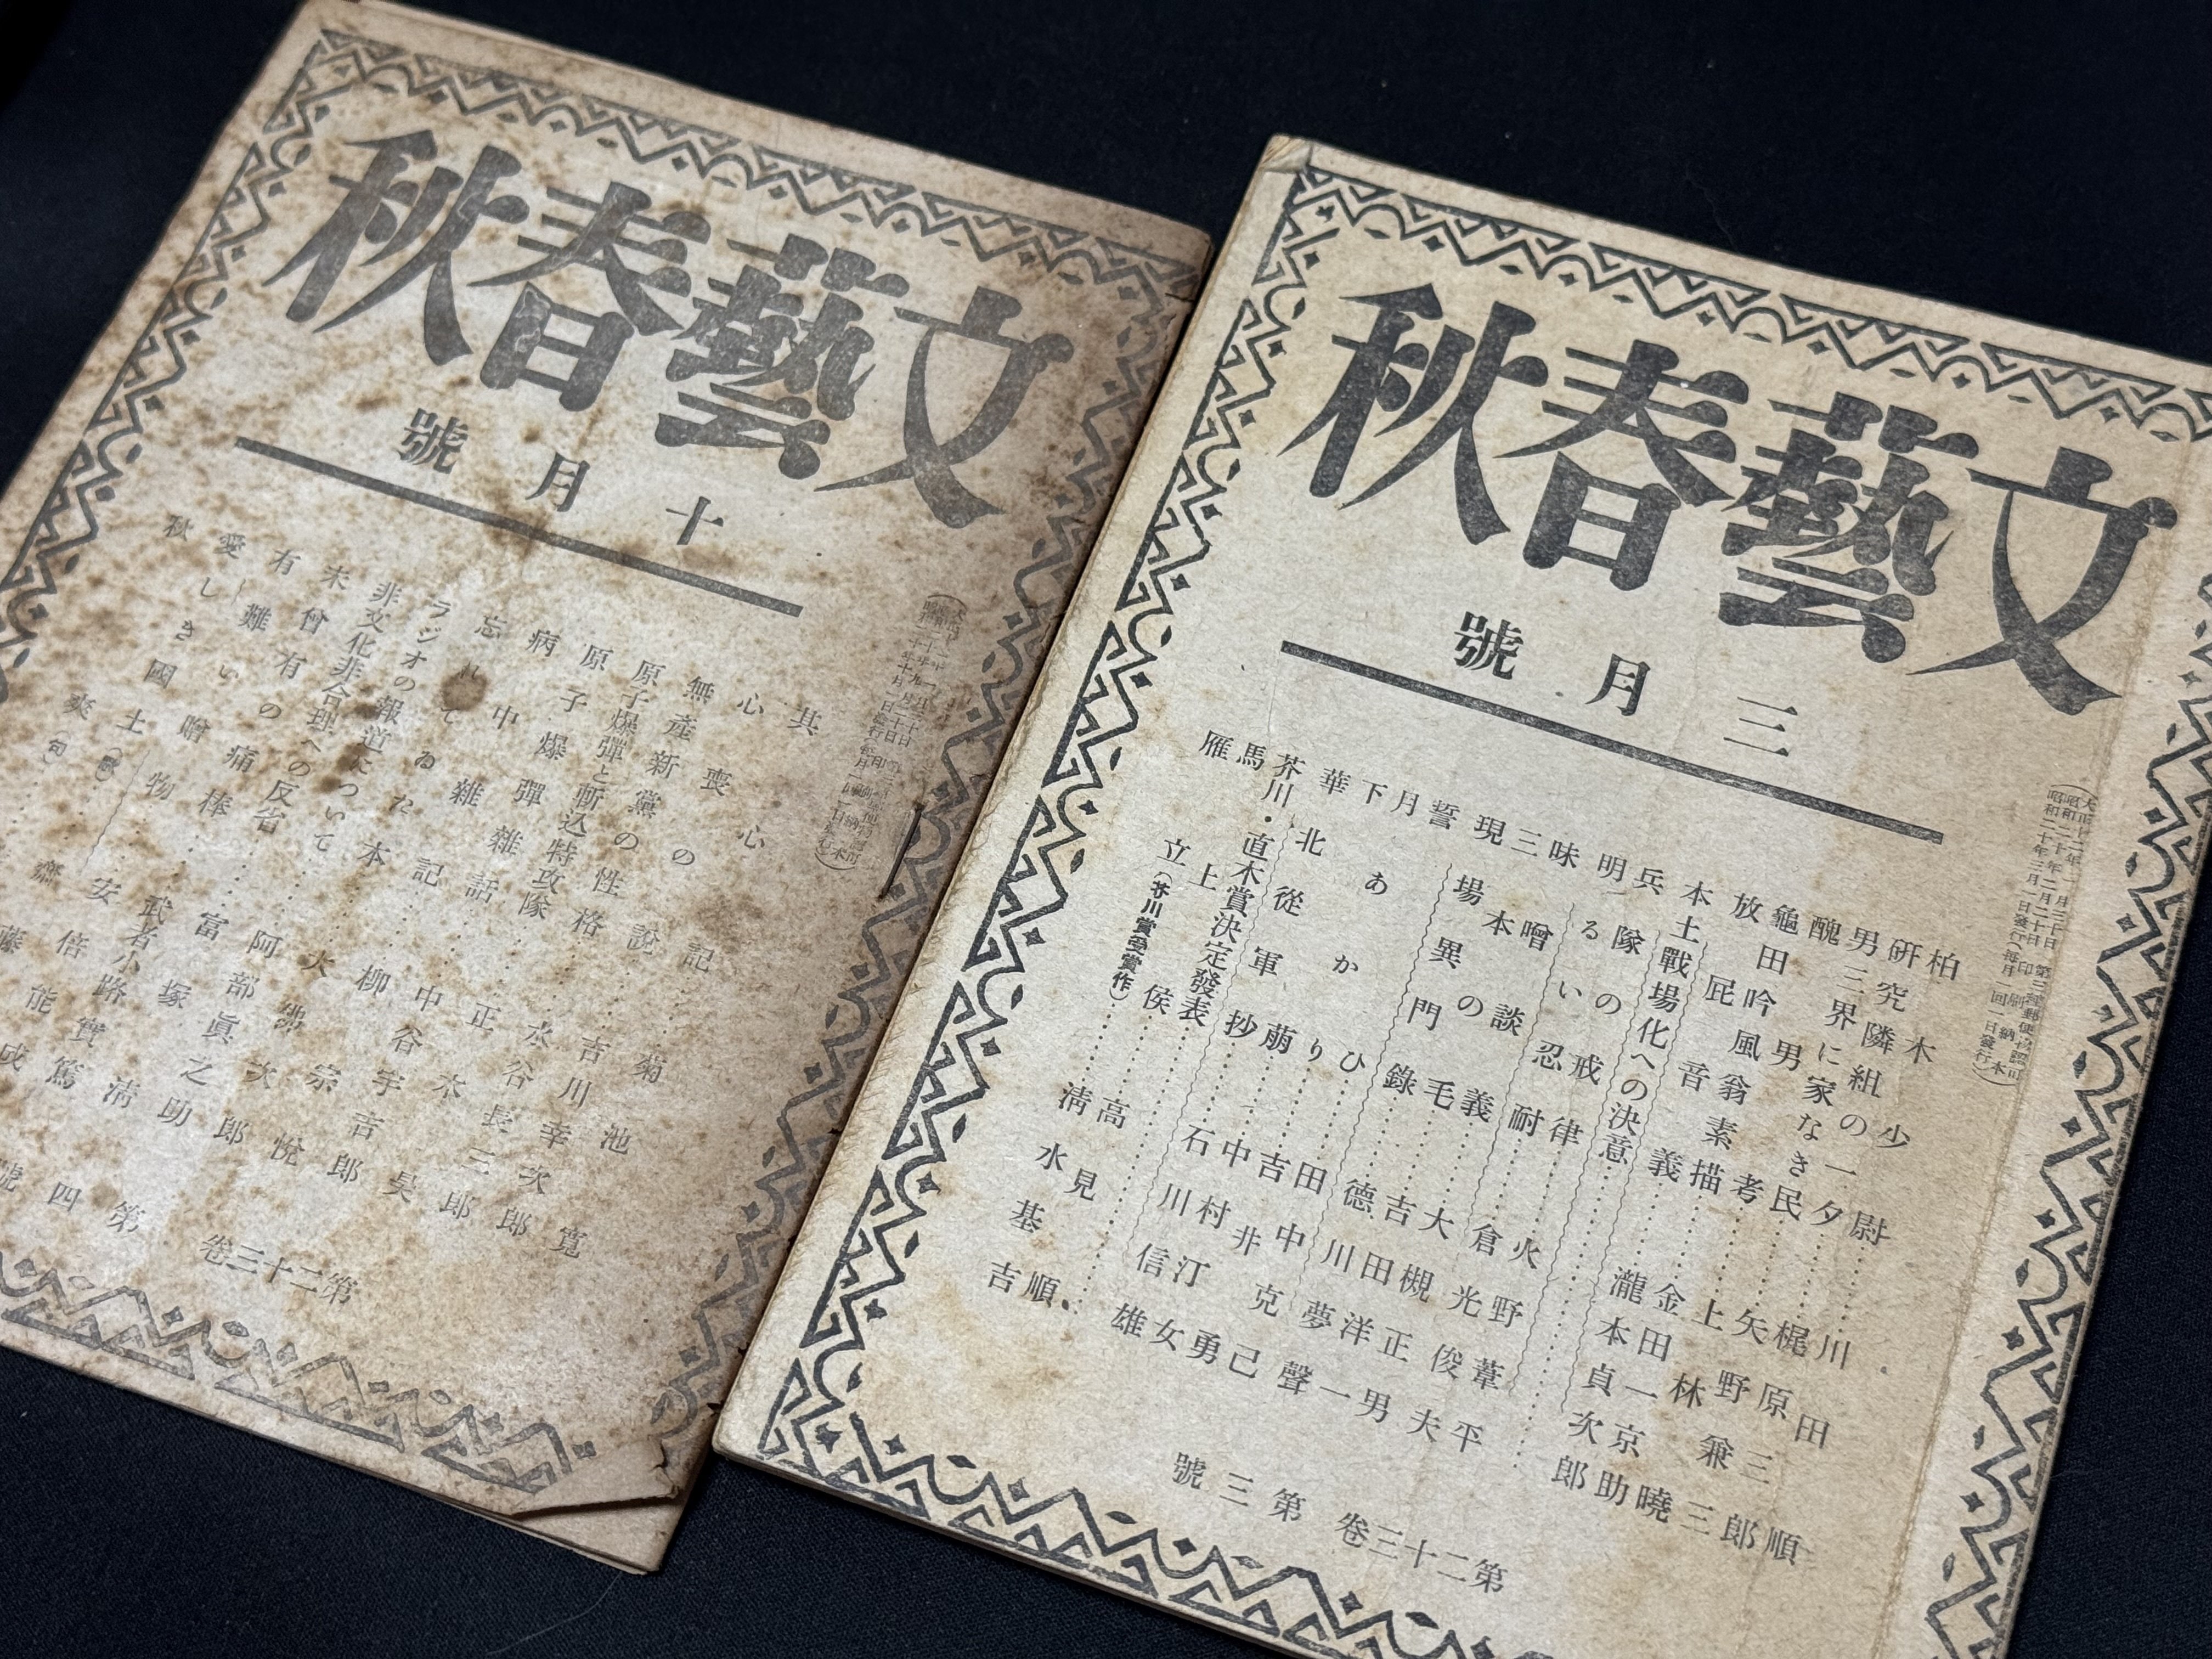 文藝春秋
十月號
其心記
菊池寛
心喪の說
吉川幸次郎
無産新黨の性格
水谷長三郎
原子爆彈と斬込特攻隊
正木昊
原子爆彈雜話
中谷宇吉郎
病中雜記
柳宗悅
忘れてゐた本
大佛次郎
ラジオの報道について
阿部眞之助
非文化非合理への反省
富塚清
未曾有の痛棒
武者小路實篤
有難い贈物
安倍能成
愛しき國土(歌)
齋藤
秋爽(句)
第二十三卷 第四號
文藝春秋
三月號
(大正十二年一月三十日 第三種郵便物認可
昭和二十年二月二十日 印刷納本
昭和二十年三月一日發行(毎月一回一日發行))
柏木少尉……川田順
研究隣組の一夕……梶原三郎
男三界に家なき民……矢野兼三
醜男考……上林曉
龜田吟風翁素描……金田一京助
放屁音義……瀧本貞次郎
本土戰場化への決意……
兵隊の戒律……火野葦平
明るい忍耐……倉光俊夫
味噌談義……大槻正男
三本の毛……吉田洋一
現場異門錄……德川夢聲
誓ひ……田中克己
月あかり……吉井勇
下萠……中村汀女
華北從軍抄……石川信雄
芥川・直木賞決定發表
馬上侯……高見順
雁立(芥川賞受賞作)……清水基吉
第二十三卷 第三號